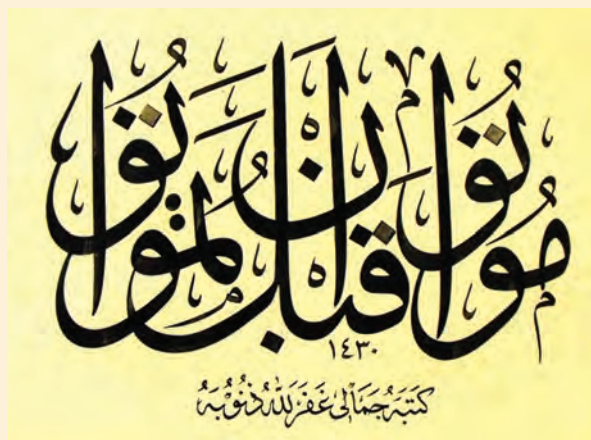 موتوا قبل ان تموتوا
١٤٣٠
كتبه جمالى غفر الله ذنوبه